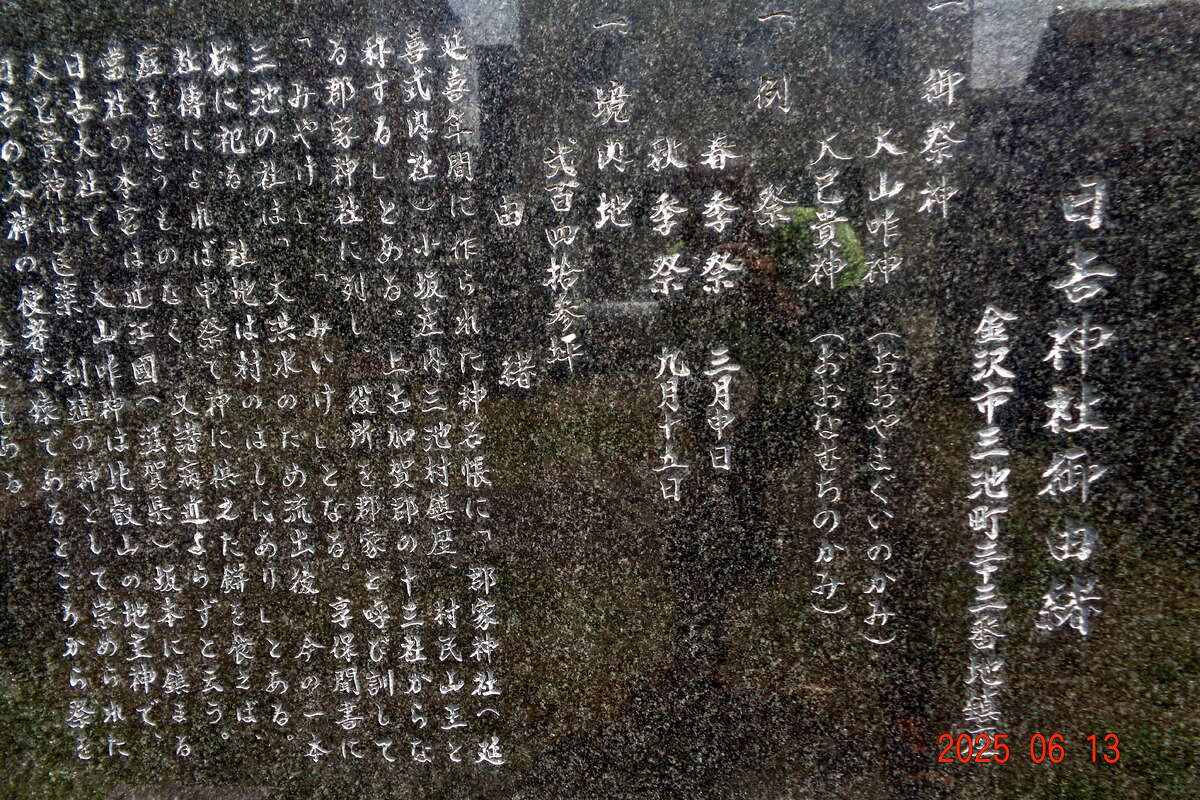 日吉神社御由緒
金沢市三池町三十三番地鎮座
一 御祭神
大山咋神 (おおやまぐいのかみ)
大己貴神 (おおなむちのかみ)
一 例 祭
春季祭 三月申日
秋季祭 九月十五日
一 境内地
弐百四拾参坪
由 緒
延喜年間に作られた神名帳に「郡家神社へ延
喜式内社)小坂庄内三池村鎮座 村民山王と
称する」とある。上古加賀郡の十三社からな
る郡家神社に列し 役所を郡家と呼び訓して
「みやけ」「みいけ」となる。享保聞書に
三池の社は「大洪水のため流出後 今の一本
松に祀る 社地は村のはしにあり」とある。
社傳によれば申祭で神に供えた餅を喰えば、
疫を患うものなく、又諸病近よらずと云う。
當社の本宮は近江國(滋賀県)坂本に鎮まる
日吉大社で、大山咋神は比叡山の地主神で、
大己貴神は医薬 創造の神として崇められに
日吉の大神の使者が猿であるところから祭を